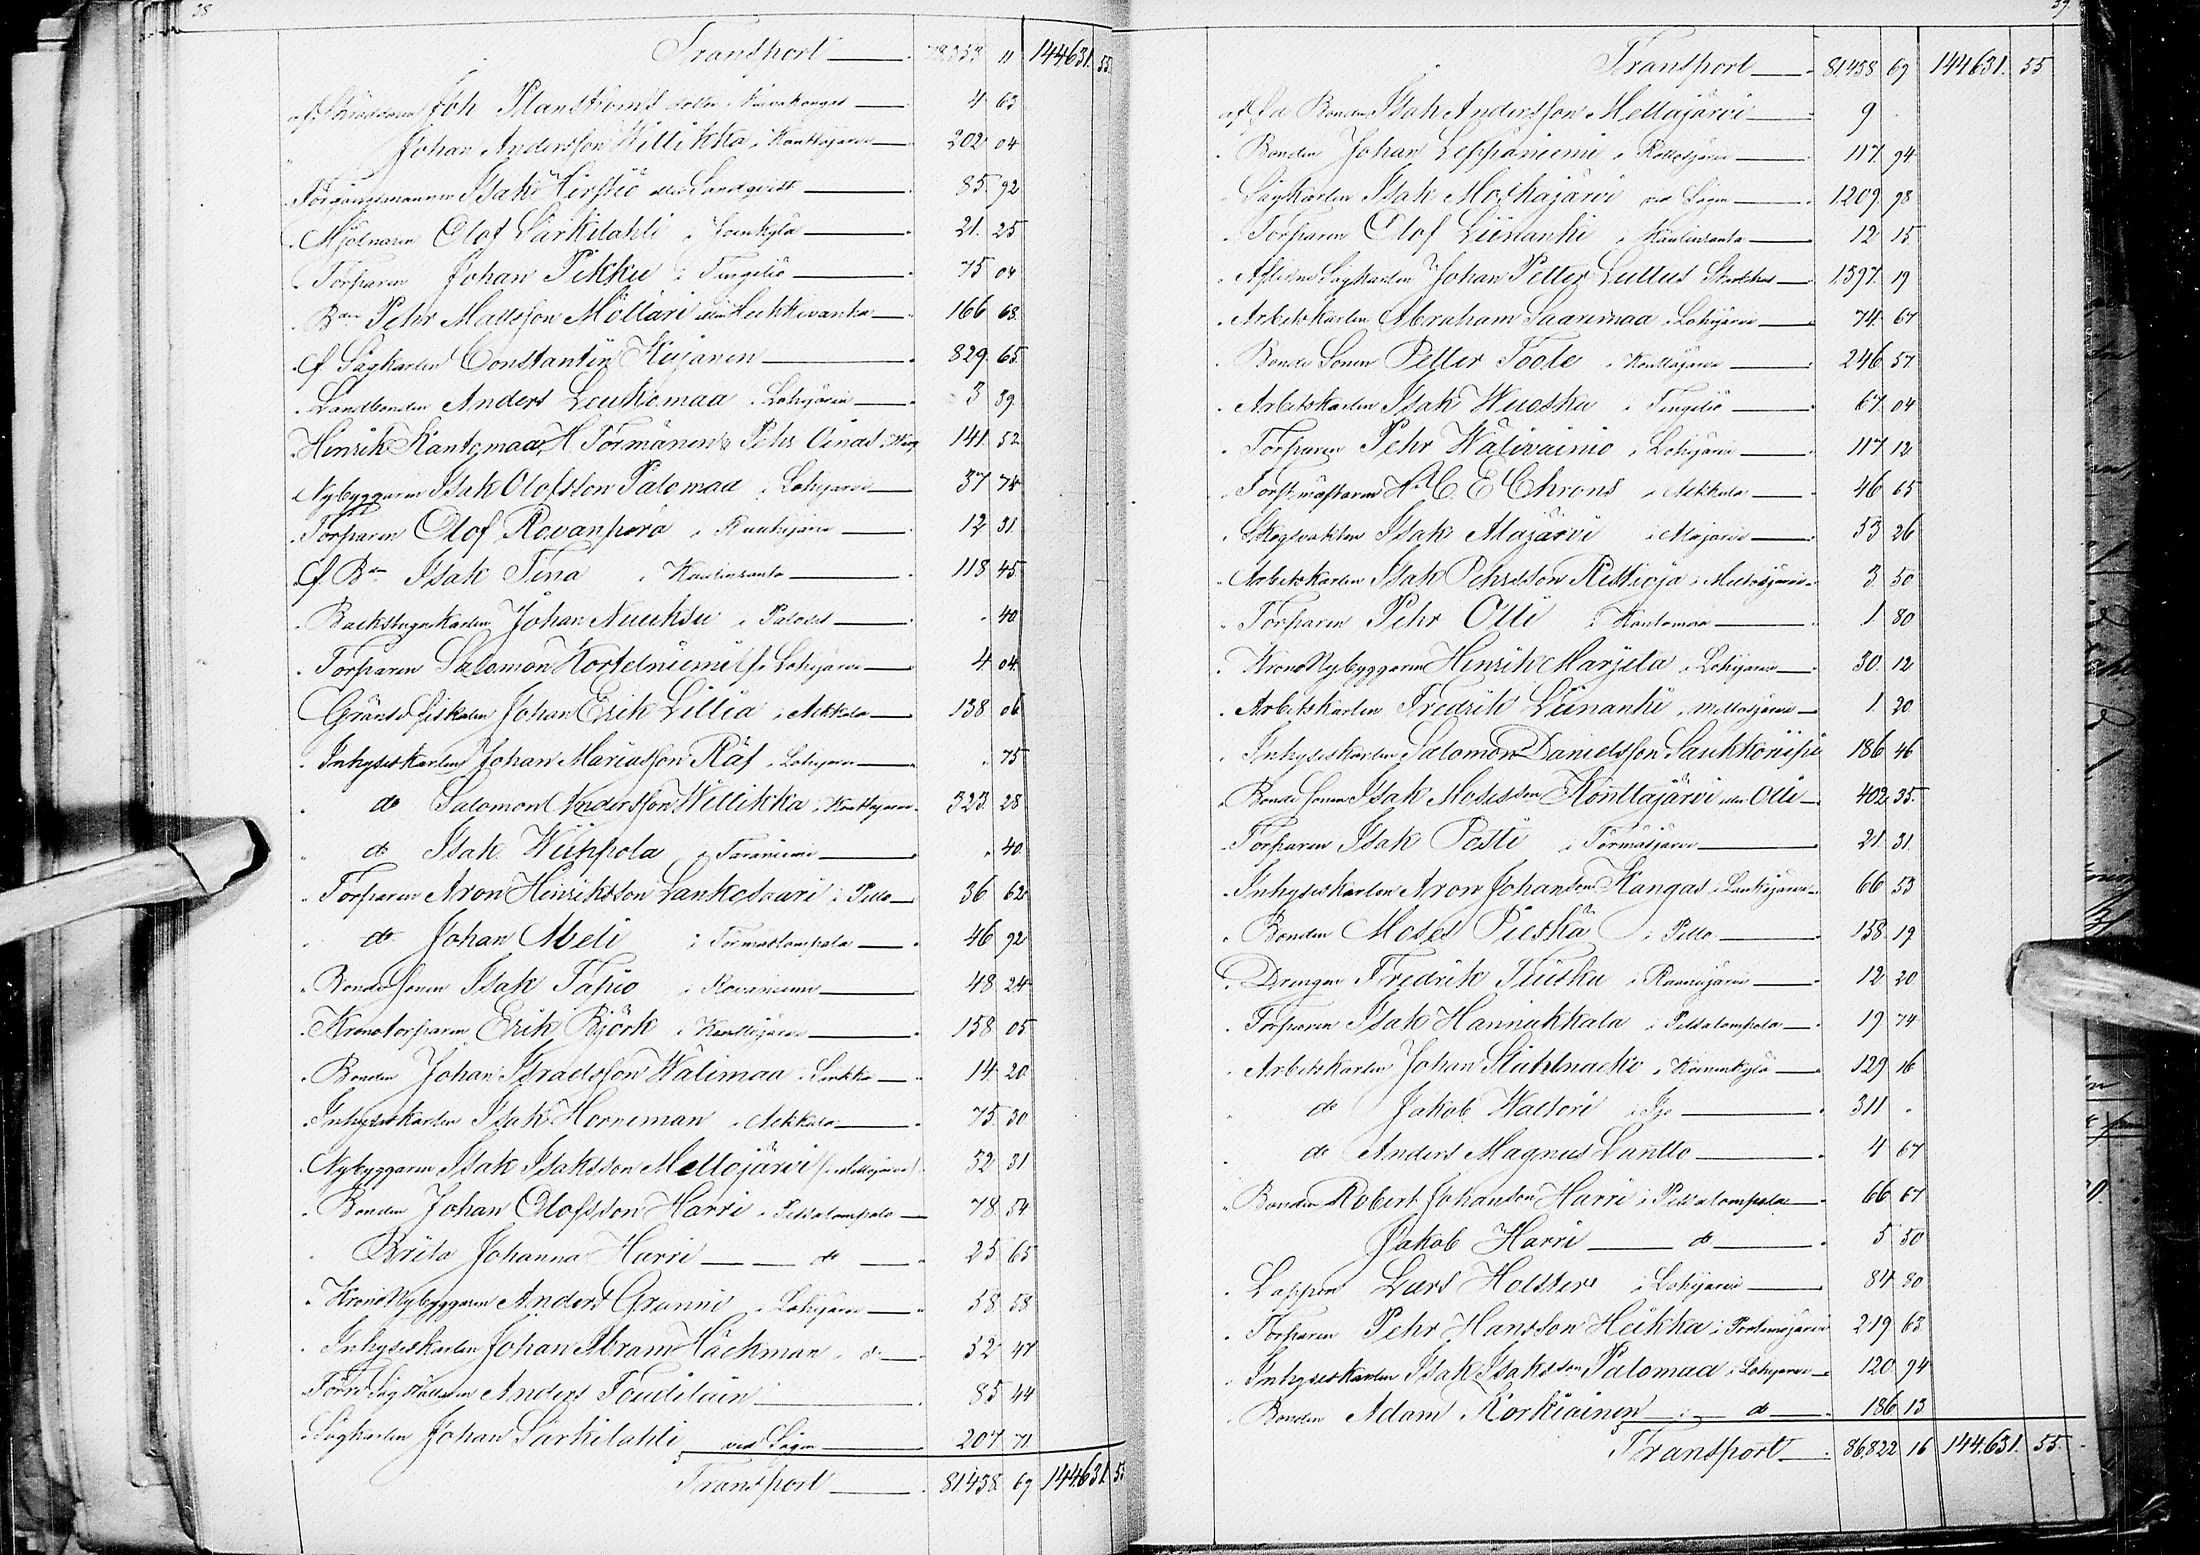 38
Transport 78353 11 144631. 55.
af Joh Planströms 4 63
" Johan Andersson Willikka i Konttajärvi 202 04
Isak Kirstiö eller Sandqvist 85. 92
" Mjölnaren Olof Särkilahti i 21. 25
" Torparen Johan Pikku i Tengeliö 75 04
" Bdn Pehr Matsson Möllari eller Heikkivanha 166 68.
" f Sågkarlen Constantin Kujanen 829. 65
" Landbonden Anders Leukumaa i Lohijärvi 3 39
" Hinrik Kantomaa, H Törmänen & Pehr Oinas 141. 52
" Nybyggaren Isak Olofsson Palomaa i Lohijärvi 37 74
" Torparen Olof Rovanperä i 12 31.
" f Bdn Isak Tina i Kaulinranta 118 45
" Backstugukarlen Johan Nuuksu i - 40
" Torparen Salomon Kortelniemi i Lohijärvi 4. 04
Gränse fiskalen Johan Erik Lillia i Aekkala 138 06
" Inhyseskarlen Johan Mariasson Räf i Lohijärvi " 75
" do Salomon Andersson Willikka i Konttajärvi 323. 28
" do Isak Wüppola i " 40
" Torparen Aron Henriksson Lankosaari i Pello 36 62
" do Johan Abeli i 46 92
" Bondesonen Isak Tapio i Rovaniemi 48 24
" Kronotorparen Erik Björk i Konttajärvi 158 05
" Bonden Johan Israelsson Walimaa i 14 20
" Inhyseskarlen Isak Horneman i Aekkala 75 30
" Nybyggaren Isak Isaksson Mellojärvi 52 31
" Bonden Johan Olofsson Harri i Pessalompolo 78 54
" Brita Johanna Harri do 25 65
" Krono Nybyggaren Anders Granni i Lohijärvi 58 58
" Inhyseskarlen Johan Abram Häckman do 52 47
" Anders Toudilain 85 44
" Sågkarlen Johan Särkilahti ved Sågen 207 71
Transport 81458. 69 144631.
39.
Transport 81458 69 144631. 55
af fd Bonden Isak Andersson Mellajärvi 9
" Bonden Johan Leppäniemi i 117. 94
" Sågkarlen Isak Moskajärvi ved Sågen 1209. 98
" Torparen Olof Liinanki i Kaulinranta 12 15
" Aflidne Sågkarlen Johan Petter Lullus 1597. 19
" Arbetskarlen Abraham Saarimaa i Lohijärvi 74. 67
" Bonde Sonen Petter Toolo i Konttajärvi 246 57
" Arbetskarlen Isak Wuosku i Tengeliö 67. 04
" Torparen Pehr Wälivainio i Lohijärvi 117 12
" Forstmästaren Hr C. E Chrons i Aekkala 46 65
" Skogvakten Isak Alajärvi i Alajärvi 53 26
" Arbetskarlen Isak Pehrsson Kettioja i 3 50
" Torparen Pehr Olli i Kantomaa 1 80
" Krono Nybyggaren Hinrik Marjeta i Lohijärvi 30. 12
" Arbetskarlen Fredrik Liinanki i 1. 20
" Inhyseskarlen Salomon Danielsson Saukkoriipi 186 46
" Bonde sonen Isak Mosesson Konttajärvi eller Olli 402 35.
" Torparen Isak Posti i Törmäsjärvi 21. 31.
" Inhyseskarlen Aron Johansson Kangas i 66 53
" Bonden Moses Pieskä i Pello 158 19
" Drengen Fredrik Tuiska i 12 20
" Torparen Isak Hannukkala i Pessalompolo 19 74
" Arbetskarlen Johan Stählnacke i 129 16
" do Jakob Waltori i Ijo 311 "
" do Anders Magnus Lantto 4 67
" Bonden Robert Johansson Harri i Pessalompolo 66 67
Jakob Harri do 5 50
" Lappen Lars Holster i Lohijärvi 84 80
" Torparen Pehr Hansson Heikka i Portimojärvi 219 63
" Inhyseskarlen Isak Isaksson Palomaa i Lohijärvi 120 94
" Bonden Adam Korkiainen do 186 13
Transport 86822 16 144.631. 55.